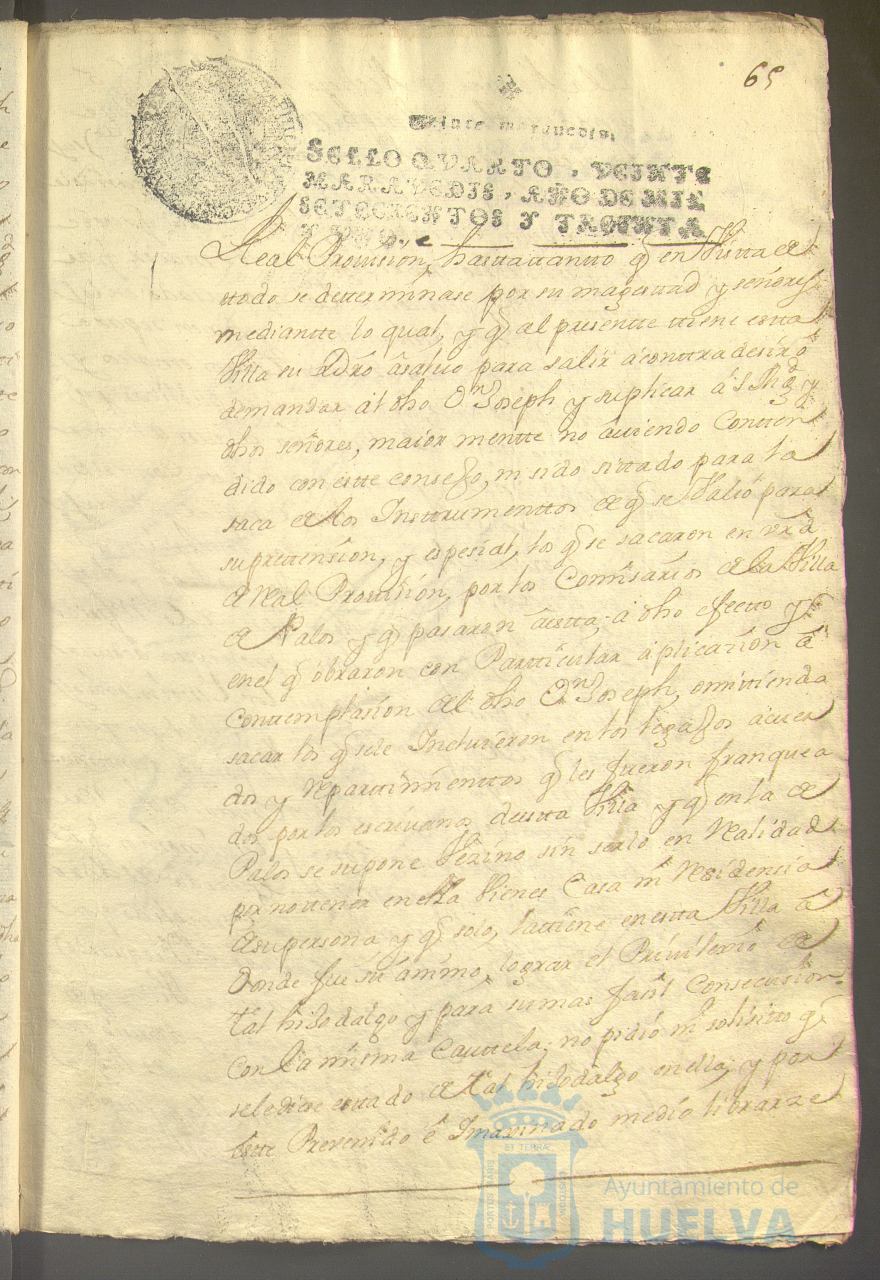 65
Veinte maravedis.
SELLO QVARTO, VEINTE
MARAVEDIS, AÑO DE MIL
SETECIENTOS Y TREINTA
Y VNO.
Real Provision, hasttattantto q̃ en Vistta de
ttodo se determinase por su magesttad y señores
mediantte lo qual, y q̃ al presentte ttiene estta
Villa su dr̃o asalvo para salir a conttradesir o
demandar al dho Dn Joseph y suplicar a S Mgd y
dhos señores, maior mentte no aviendo Conttên
dido con estte consejo, ni sido sittado para la
saca de los Insttrumenttos de q̃ se Valio para
su prettension, y espesial, los q̃ se sacaron en vrã
de Real Provision, por los Comisarios de la Villa
de Palos y q̃ pasaron a estta, a dho efecto y
en el q̃ obraron con Partticular aplicazion a
Conttemplasion del dho Dn Joseph, omittiendo
sacar los q̃ se le Incluieron en los legajos acuer
dos y Reparttimienttos q̃ les fueron franquea
dos por los escrivanos de estta Villa y q̃ en la de
Palos se supone Vezino sin serlo en Realidad
por no ttener en ella Vienes Casa ni Residensia
de su persona y q̃ solo, la ttiene en estta Villa a
Donde fue su animo, lograr el Privilexio de
tal hijodalgo y para su mas fasil Consecusion
Con la misma Cauttela, no pidio ni solisitto q̃
se le diese esttado de tal hijodalgo en ella, y por
estte Prevenido e Imaxinado medio librarse
Ayuntamiento de
HUELVA